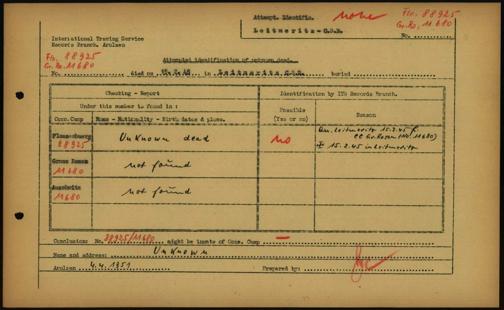 Attempt. Identific. none Flo. 88925
Gr.Ro. 11680
Leitmeritz-C.S.R. No.
International Tracing Service
Records Branch, Arolsen
Flo. 88925
Gr.Ro. 11680
Attempted identification of unknown dead.
No. died on in Leitmeritz C.S.R. buried
Checking - Report
Identification by ITS Records Branch.
Under this number is found in :
Possible
(Yes or no)
Reason
Conc.Camp Name - Nationality - Birth dates & place.
Flossenburg
88925
Unknown dead
no
Leitmeritz 15.2.45 fr.
CC Gr.Rosen (No. 11680)
15.2.45 in Leitmeritz
Gross Rosen
11680
not found
Auschwitz
11680
not found
Conclusion: No. 88925/11680 might be inmate of Conc. Camp —
Name and address: Unknown
Arolsen 4.4.1951 Prepared by: